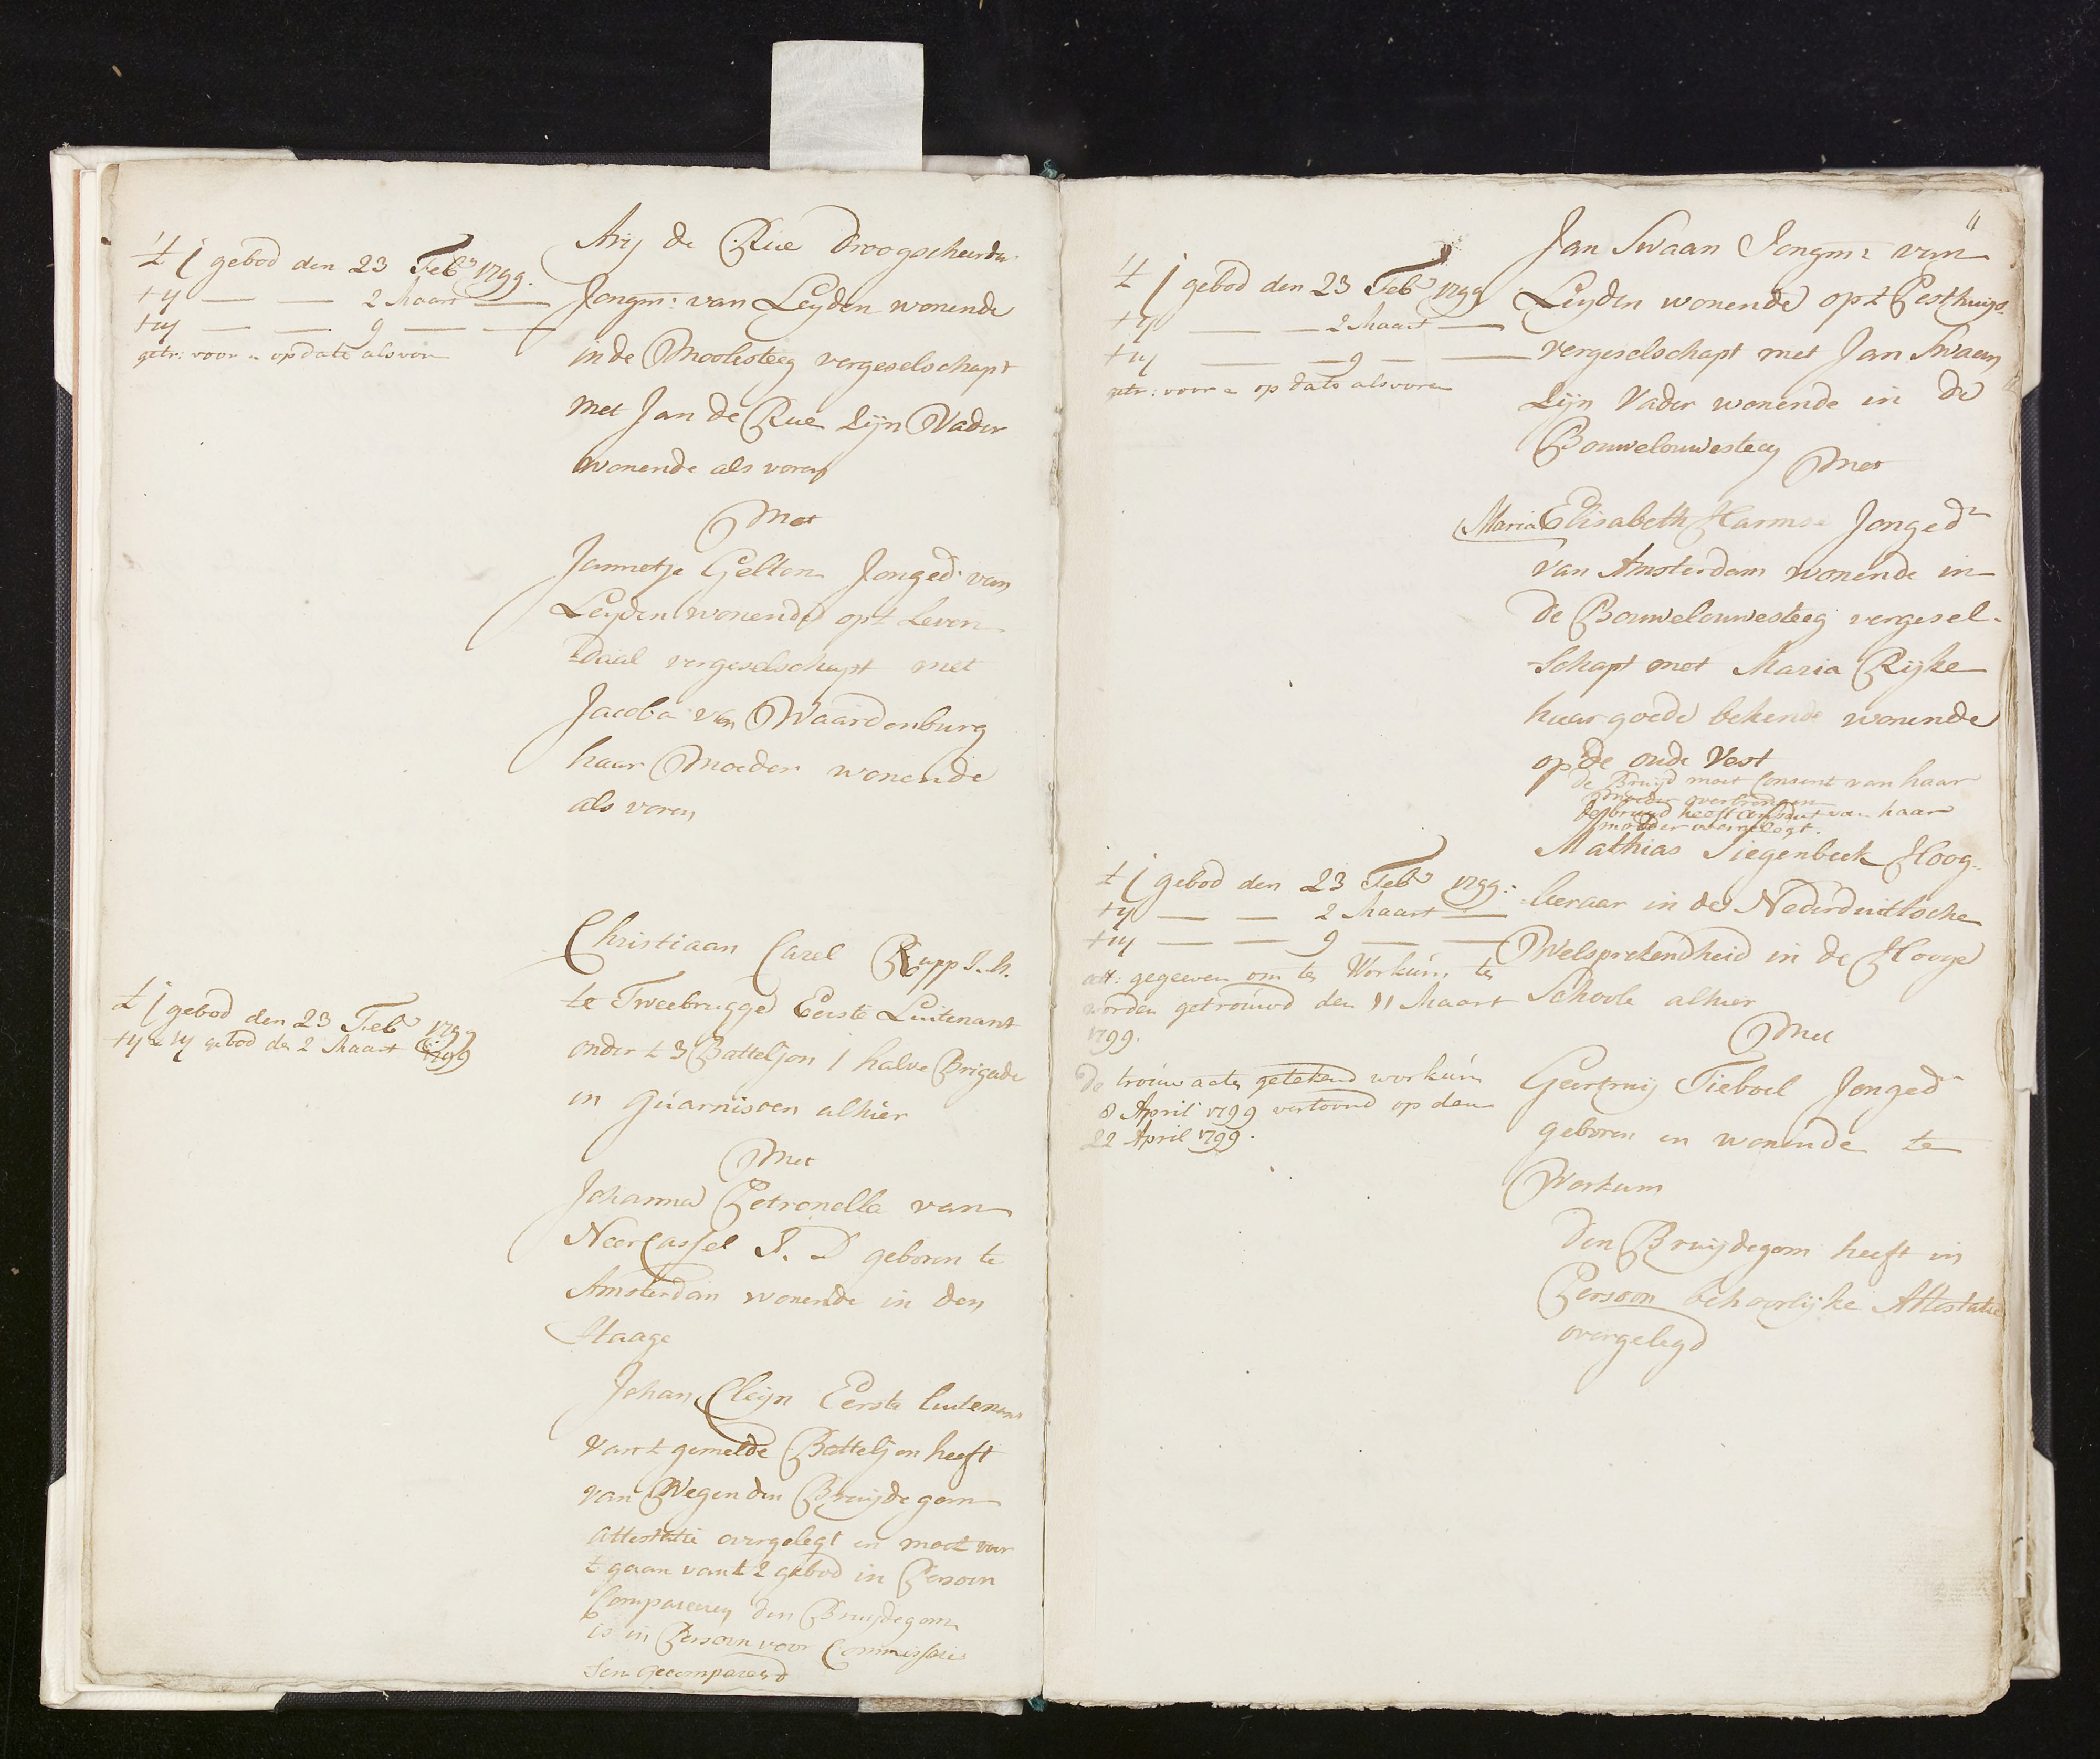 't j gebod den 23 Feb 1799.
t ij — — 2 Maart —
t iij — — 9 — —
getr: voor - op dato als voren
Arij de Rue Droogscheerder
Jongm: van Leyden wonende
in de Moolesteeg vergeselschapt
Met Jan de Rue Zijn Vader
wonende als voren
Met
Jannetje Gellon Jonged. van
Leyden wonende opt Leven
daal vergeselschapt met
Jacoba van Waardenburg
haar Moeder wonende
als voren
't j gebod den 23 Feb 1799
t ij & iij gebod den 2 Maart 1799
Christiaan Carel Rupp J. M.
te Tweebrugge Eerste Luitenant
onder t 3 Batteljon 1 halve Brigade
in Guarnisoen alhier
Met
Johanna Petronella van
Neercassel J. D geboren te
Amsterdam wonende in den
Haage
Johan Cleijn Eerste luitenant
van t gemelde Batteljon heeft
van Wegen den Bruijdegom
Attestatie overgelegt en moet voor
t gaan vant 2 gebod in Persoon
Compareren den Bruijdegom
is in Persoon voor Commissaris
sen gecompareerd
11
't j gebod den 23 Feb 1799
t ij — — 2 Maart —
t iij — — 9 — —
getr: voor - op dato als voren
Jan Swaan Jongm: van
Leyden wonende op t Pesthuys
vergeselschapt met Jan Swaan
Zijn Vader wonende in de
Bouwelouwesteeg
Met
Maria Elisabeth Harmse Jonged
van Amsterdam wonende in
de Bouwelouwesteeg vergesel-
schapt met Maria Rijke
haar goede bekende wonende
op de oude Vest
de Bruyd moet Consent van haar
Moeder
de bruyd heeft Consent van haar
moeder overgelegt.
't j gebod den 23 Feb 1799:
t ij — — 2 Maart —
t iij — — 9 — —
att: gegeeven om te Workum te
worden getrouwd den 11 Maart
1799.
De trouw acte getekend workum
8 April 1799 vertoond op den
22 April 1799.
Mathias Siegenbeek Hoog-
leeraar in de Nederduitsche
Welsprekendheid in de Hooge
Schoole alhier
Met
Geertruij Tieboel Jonged
geboren en wonende te
Workum
Den Bruijdegom heeft in
Persoon behoorlijke Attestatie
overgelegd